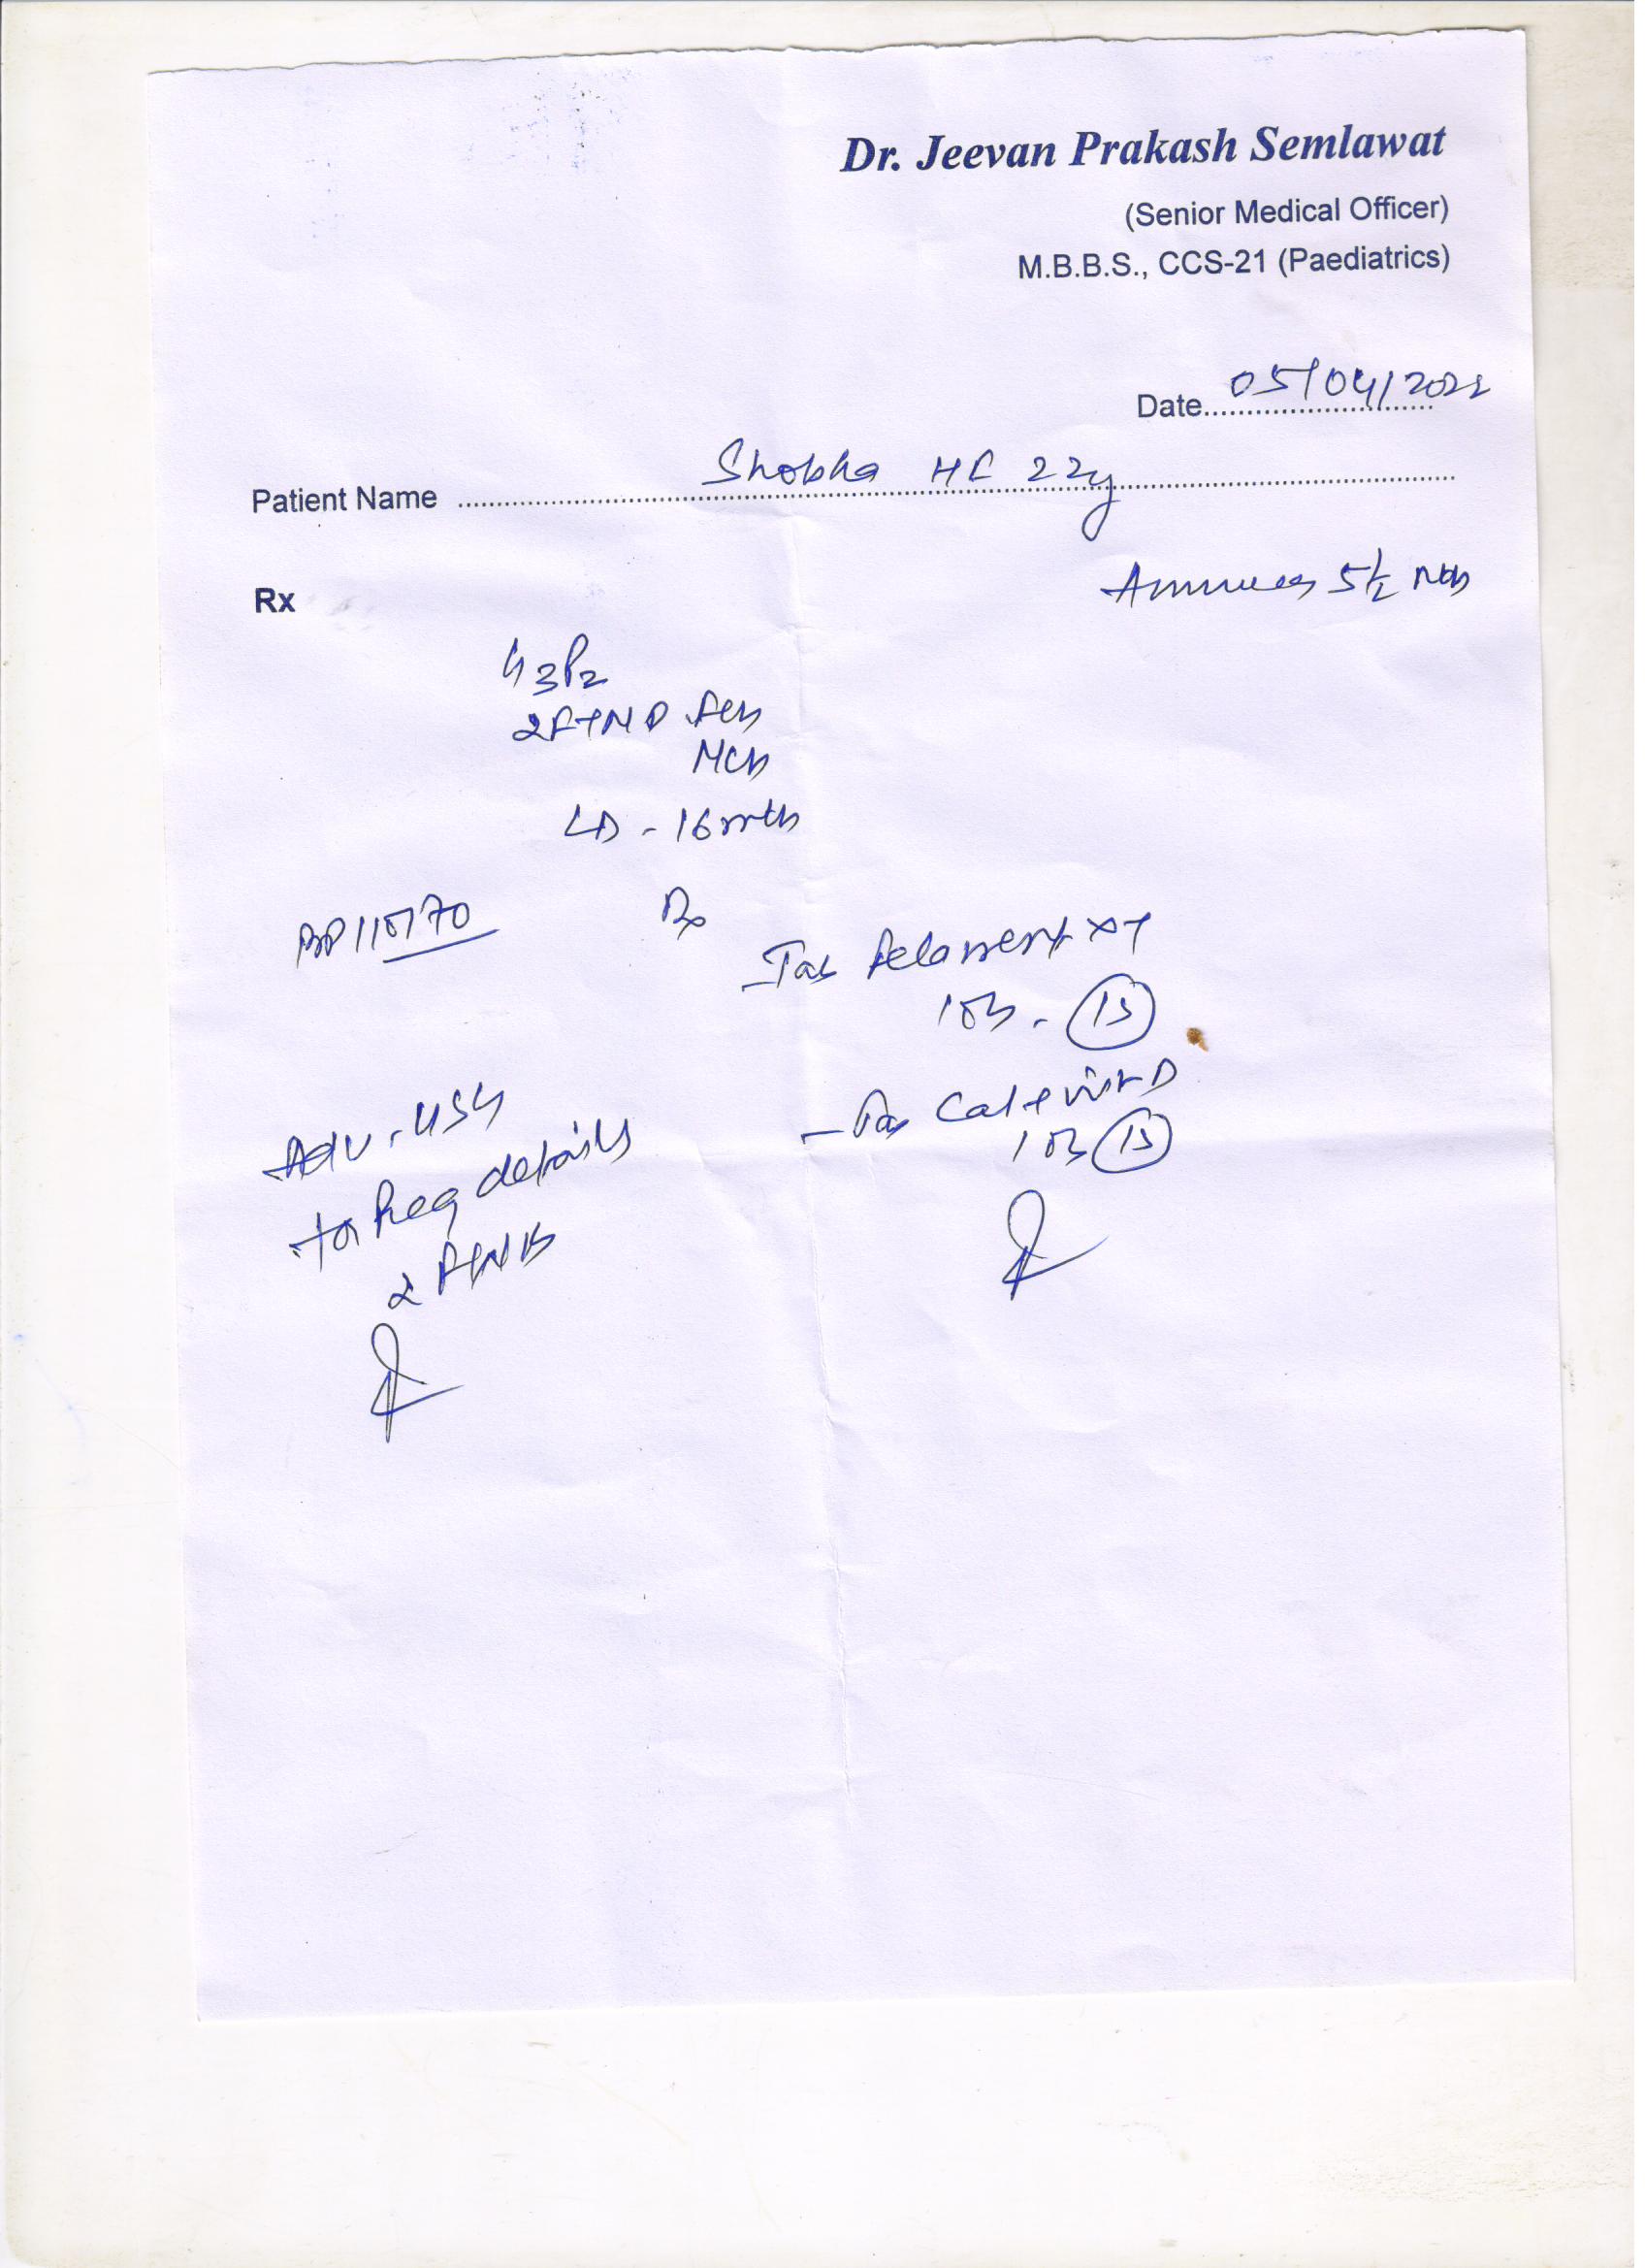 Dr. Jeevan Prakash Semlawat
(Senior Medical Officer)
M.B.B.S., CCS-21 (Paediatrics)
Date 05/04/2022
Patient Name Shobha HF 22y
5½ Mths
Rx
G3P2
2FTND FCh
MCh
LD - 16 mth
BP 110/70
Rx
- Tab XT
1 OD - (15)
- Tab Cal + vit D
1 OD (15)
Adv. USG
for Preg details
& FWB